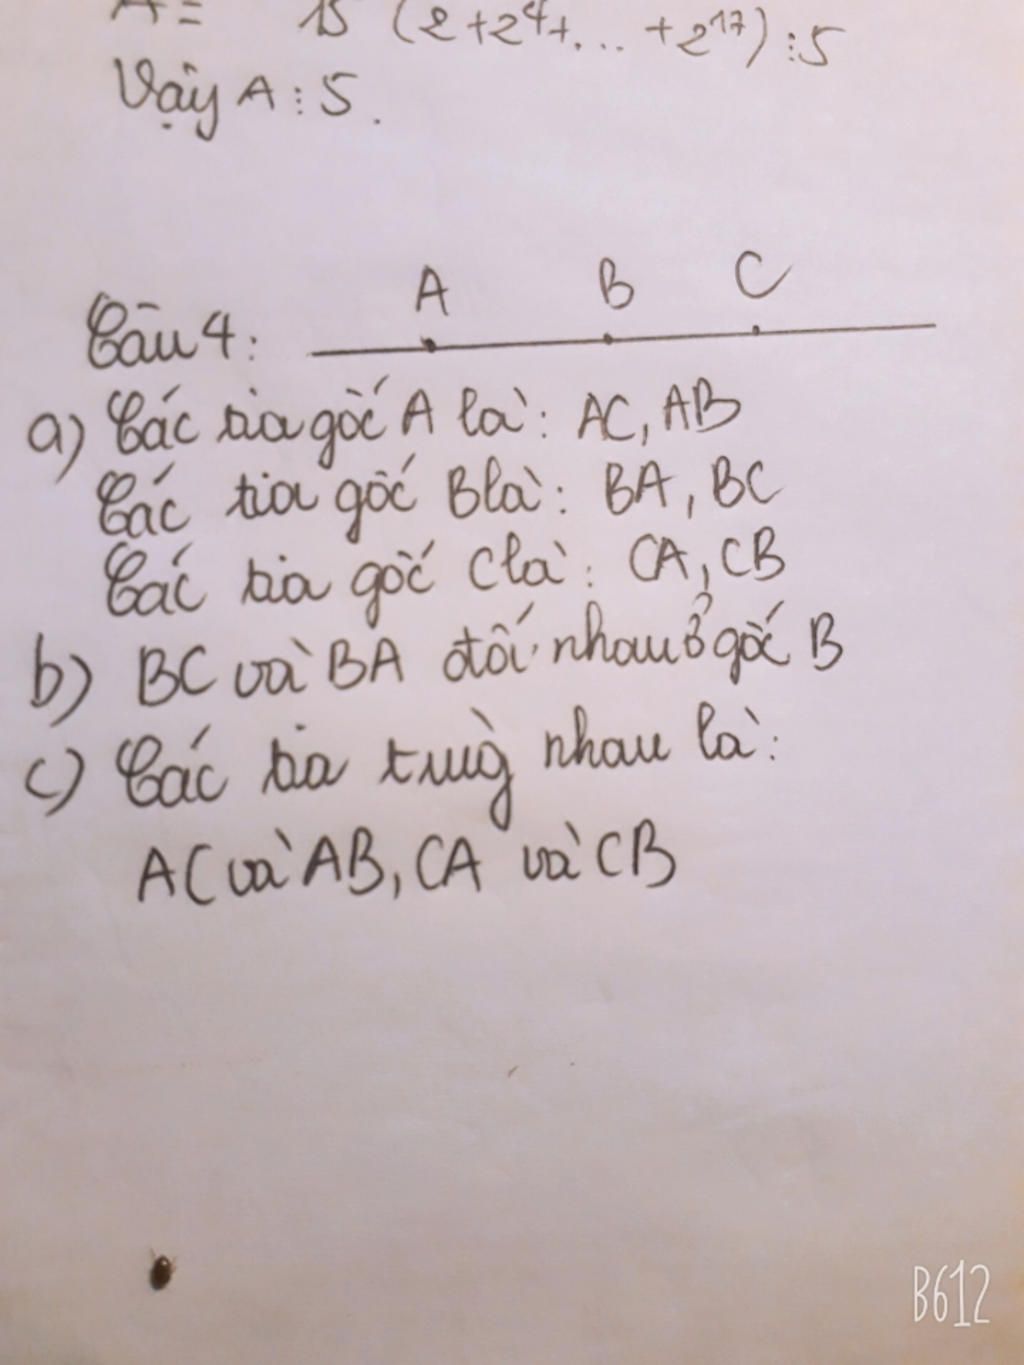 A = 15 (2+2⁴+... +2¹⁷) ⋮ 5
Vậy A ⋮ 5.
A B C
Câu 4:
a) Các tia gốc A là: AC, AB
Các tia gốc B là: BA, BC
Các tia gốc C là: CA, CB
b) BC và BA đối nhau ở gốc B
c) Các tia trùng nhau là:
AC và AB, CA và CB
B612